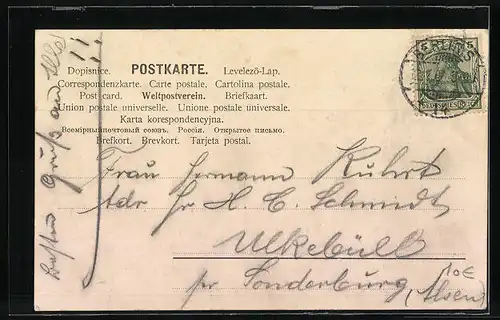 Dopisnice. POSTKARTE. Levelező-Lap.
Correspondenzkarte. Carte postale. Cartolina postale.
Post card. Weltpostverein. Briefkaart.
Union postale universelle. Unione postale universale.
Karta korespondencyjna.
Всемірный почтовый союзъ. Россія. Открытое письмо.
Brefkort. Brevkort. Tarjeta postal.
Frau Hermann Kuhrt
Adr Hr H. C. Schmidt
Ulkebüll
pr Sonderburg
(Alsen)
10€
Gruß an Alle